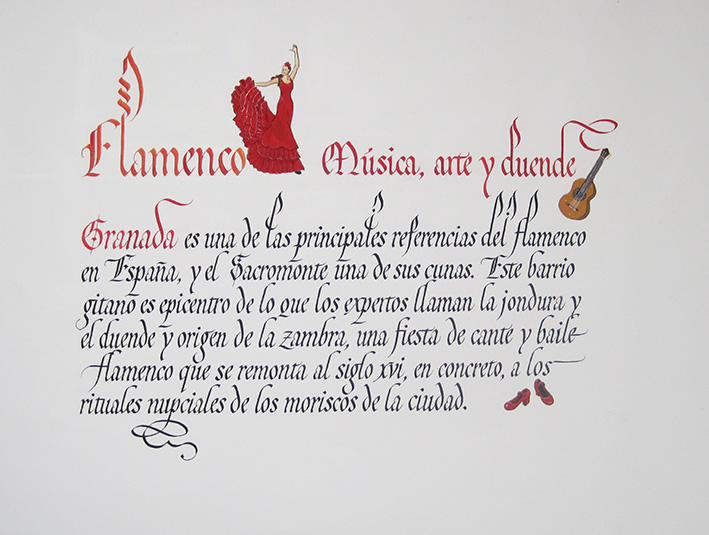 Flamenco Música, arte y duende
Granada es una de las principales referencias del flamenco
en España, y el Sacromonte una de sus cunas. Este barrio
gitano es epicentro de lo que los expertos llaman la jondura y
el duende y origen de la zambra, una fiesta de cante y baile
flamenco que se remonta al siglo xvi, en concreto, a los
rituales nupciales de los moriscos de la ciudad.